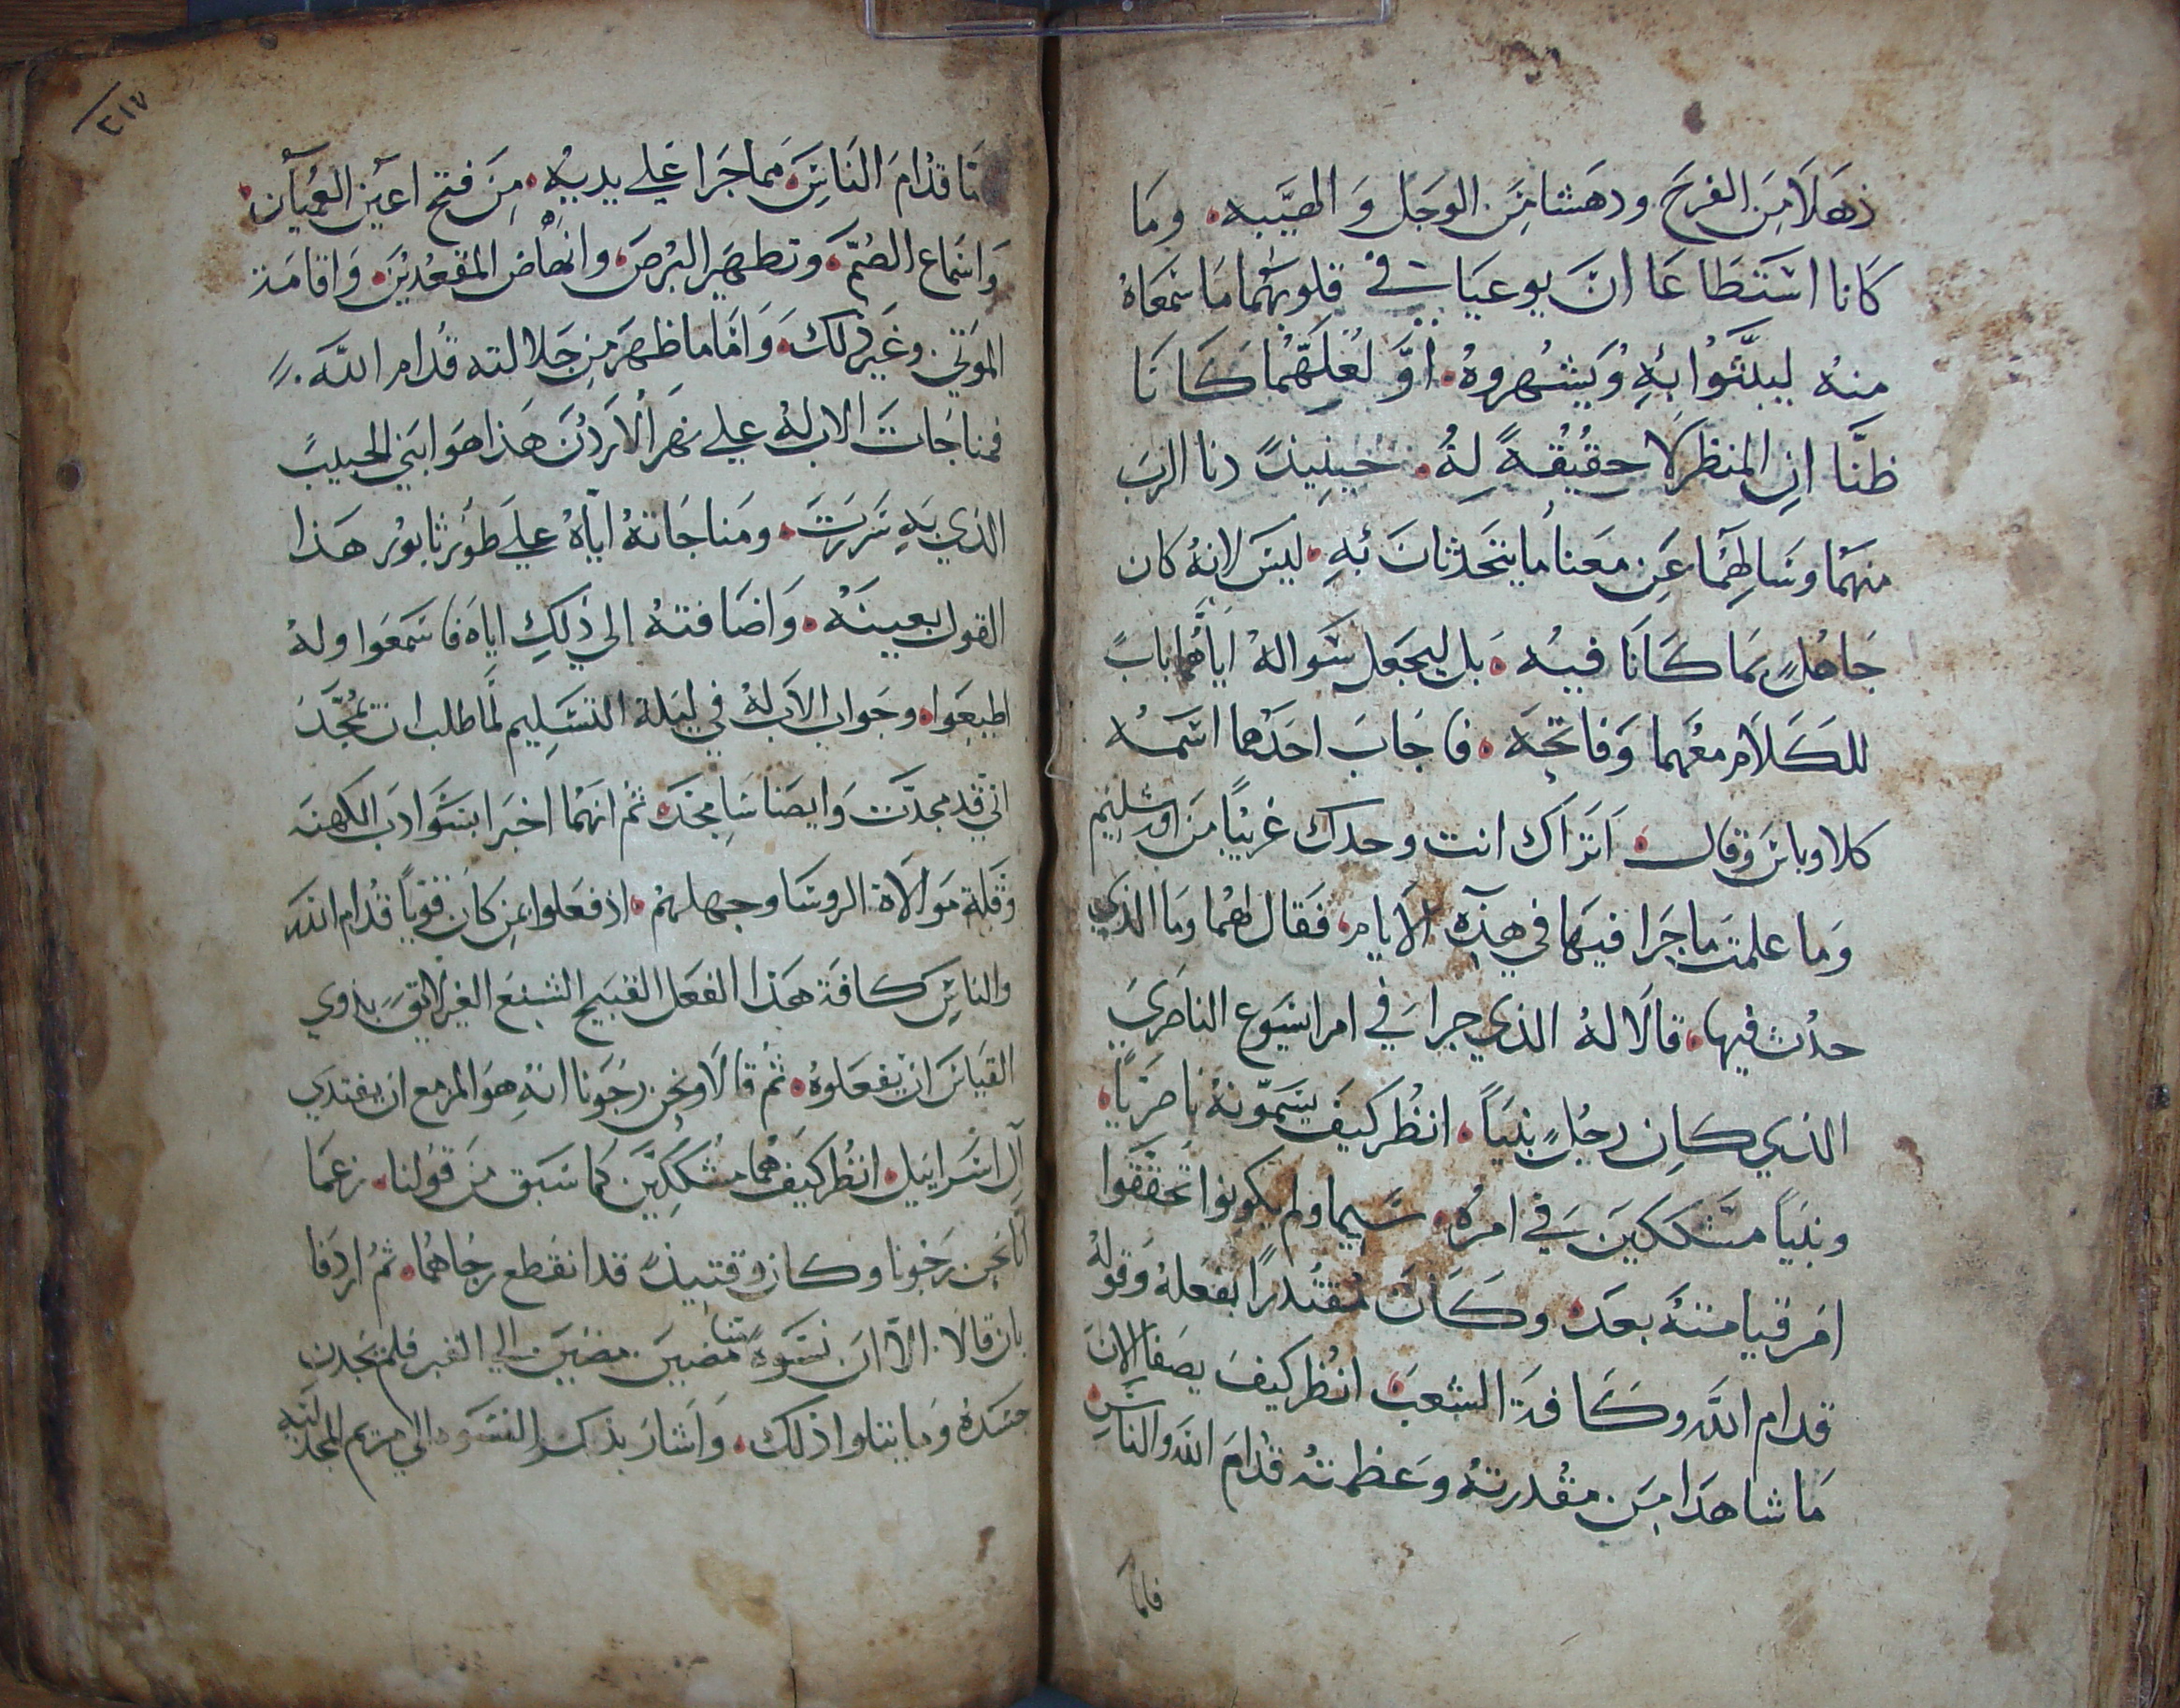 ذهلًا مِن الفرح ودهشا مِن الوجل وَالهيَبه. ومَا
كانا اسْتطاعَا انَ يوعيَا في قلوبهُما مَا سَمعَاهُ
مِنهُ ليبشّروُا بهِ وُيَشهروهُ. اوّ لعُلهّمُا كانَا
ظنَّا انِ المنظر لا حقيُقةً لهُ. حينيذً دنا الربَ
منهمُا وسَالهُمُا عَن مَعَنا ما يتحَدثانَ بهِ. ليسَ لانهُ كان
جَاهلٍ بمَا كَانَا فيهُ. بل ليجَعل سَوالهُ ايّاهُما بابً
للكَلَام معُهما وَفاتحَه. فاجَابَ احَدهُما اسَمهُ
كلاوباسَ وقال. اتَراكَ انت وحدك غريبًا مِنَ اورشليم
وَما علمتَ ما جَرا فيهَا في هذِه الايام. فقال لهُما ومَا الذي
حدُث فيها. قالَا لهُ الذي جراَ في امر ايسَوع الناصريَ
الذي كانِ رجُلٍ نبيَاً. انظُر كيفَ يسَمّونهُ ناصَريًا.
ونبيَاً متشككينَ في امرُه. سَيما ولم يكونوا تحَققَوا
امَر قيامتهَ بعَد. وكَانَ مُقتُدرًا بفعلهُ وَقولهُ
قدام اللَه وكَافة الشَعبَ انظُر كيفَ يصَفا الانَ
مَا شاهدَا مِن مقُدرتهُ وعَظمتهُ قدُامَ اللهَ والناسِ
فاما
٢١٧
نَا قدُامَ النَاسِ. فما جَرا عَلي يدييُه. مِنَ فتح اعيَن العُميَان.
وَاسَماع الصُمّ. وَتطهيَر البُرصَ. وانهُاضَ المقعُديَن. وَاقامَة
الموتي. وغيَر ذلكَ. وَامَّا ما ظهَر مِن جَلالته قدُام اللهَ.
فمناجَاتَ الاب لهُ علي نهَر الاردُنَ هَذا هوَ ابنَي الحبيبَ
الذي بهِ سَررَتَ. ومَناجَاتهُ ايّاهُ علَي طوَر ثابوُر هَذا
القول بعينهُ. وَاضَافتهُ الي ذَلكِ اياه فاسَمعَوا ولهُ
اطيعَوا. وجَواب الاَب لهُ في ليَلة التسَليِم لمّا طلب ان تمجَّدَ
انّي قد مجدّت وَايضَا سَامجَد. ثمُ انهمُا اخبَرا بسَوَا ادَب الكهنهَ
وَقلة مَوالاة الروسَا وجهلهمُ. اذ فعَلوا بمن كانَ قويًا قدُام اللهَ
والناسِ كافةَ هَذا الفعَل القبيَح الشنيَع الغير لايقَ بذوي
القيَاسَ انَ يفعَلوهُ. ثمُ قالَا ونحَن رجُونا انهِ هوَ المزمع ان يفتدَي
آلِ اسَراييل. انظُر كيفَ همَا مشُككيَّن كمَا سَبق مِنَ قوَلنا. زعمَا
انّا نحَن رَجَونا وكانَ وقتيذً قد انقطَع رجُاهُما. ثمُ اردَفا
بان قالَا. الاّ انَ نسَوةَ مِنّا مضيَن مضَيَن الي القبر فلم تجدن
جسَدهُ وَما يتلوا ذلك. وَاشَار بذكر النسَوه الي مَريَم المجدليه